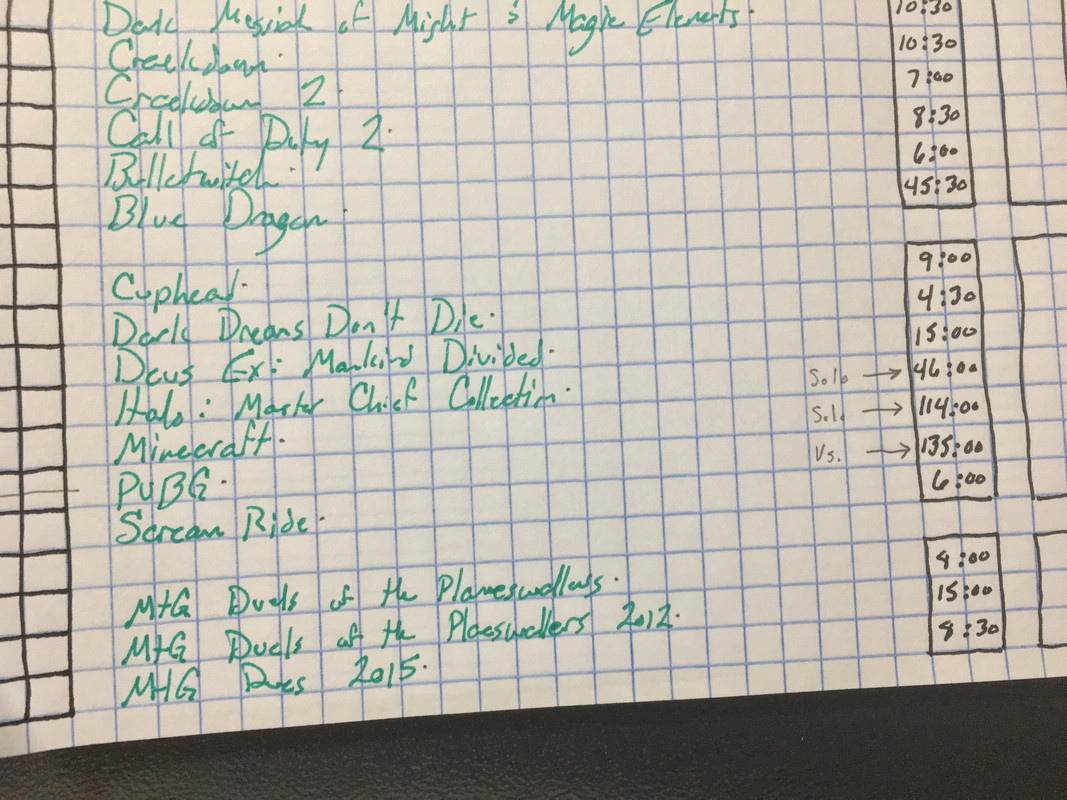 Dark Messiah of Might & Magic Elements. 10:30
Crackdown. 10:30
Crackdown 2. 7:00
Call of Duty 2. 8:30
Bulletwitch. 6:00
Blue Dragon. 45:30
Cuphead. 9:00
Dark Dreams Don't Die. 4:30
Deus Ex: Mankind Divided. 15:00
Halo: Master Chief Collection. Solo → 46:00
Minecraft. Solo → 114:00
PUBG. Vs. → 135:00
Scream Ride. 6:00
MtG Duels of the Planeswalkers. 4:00
MtG Duels of the Plaeswalkers 2012. 15:00
MtG Dues 2015. 8:30